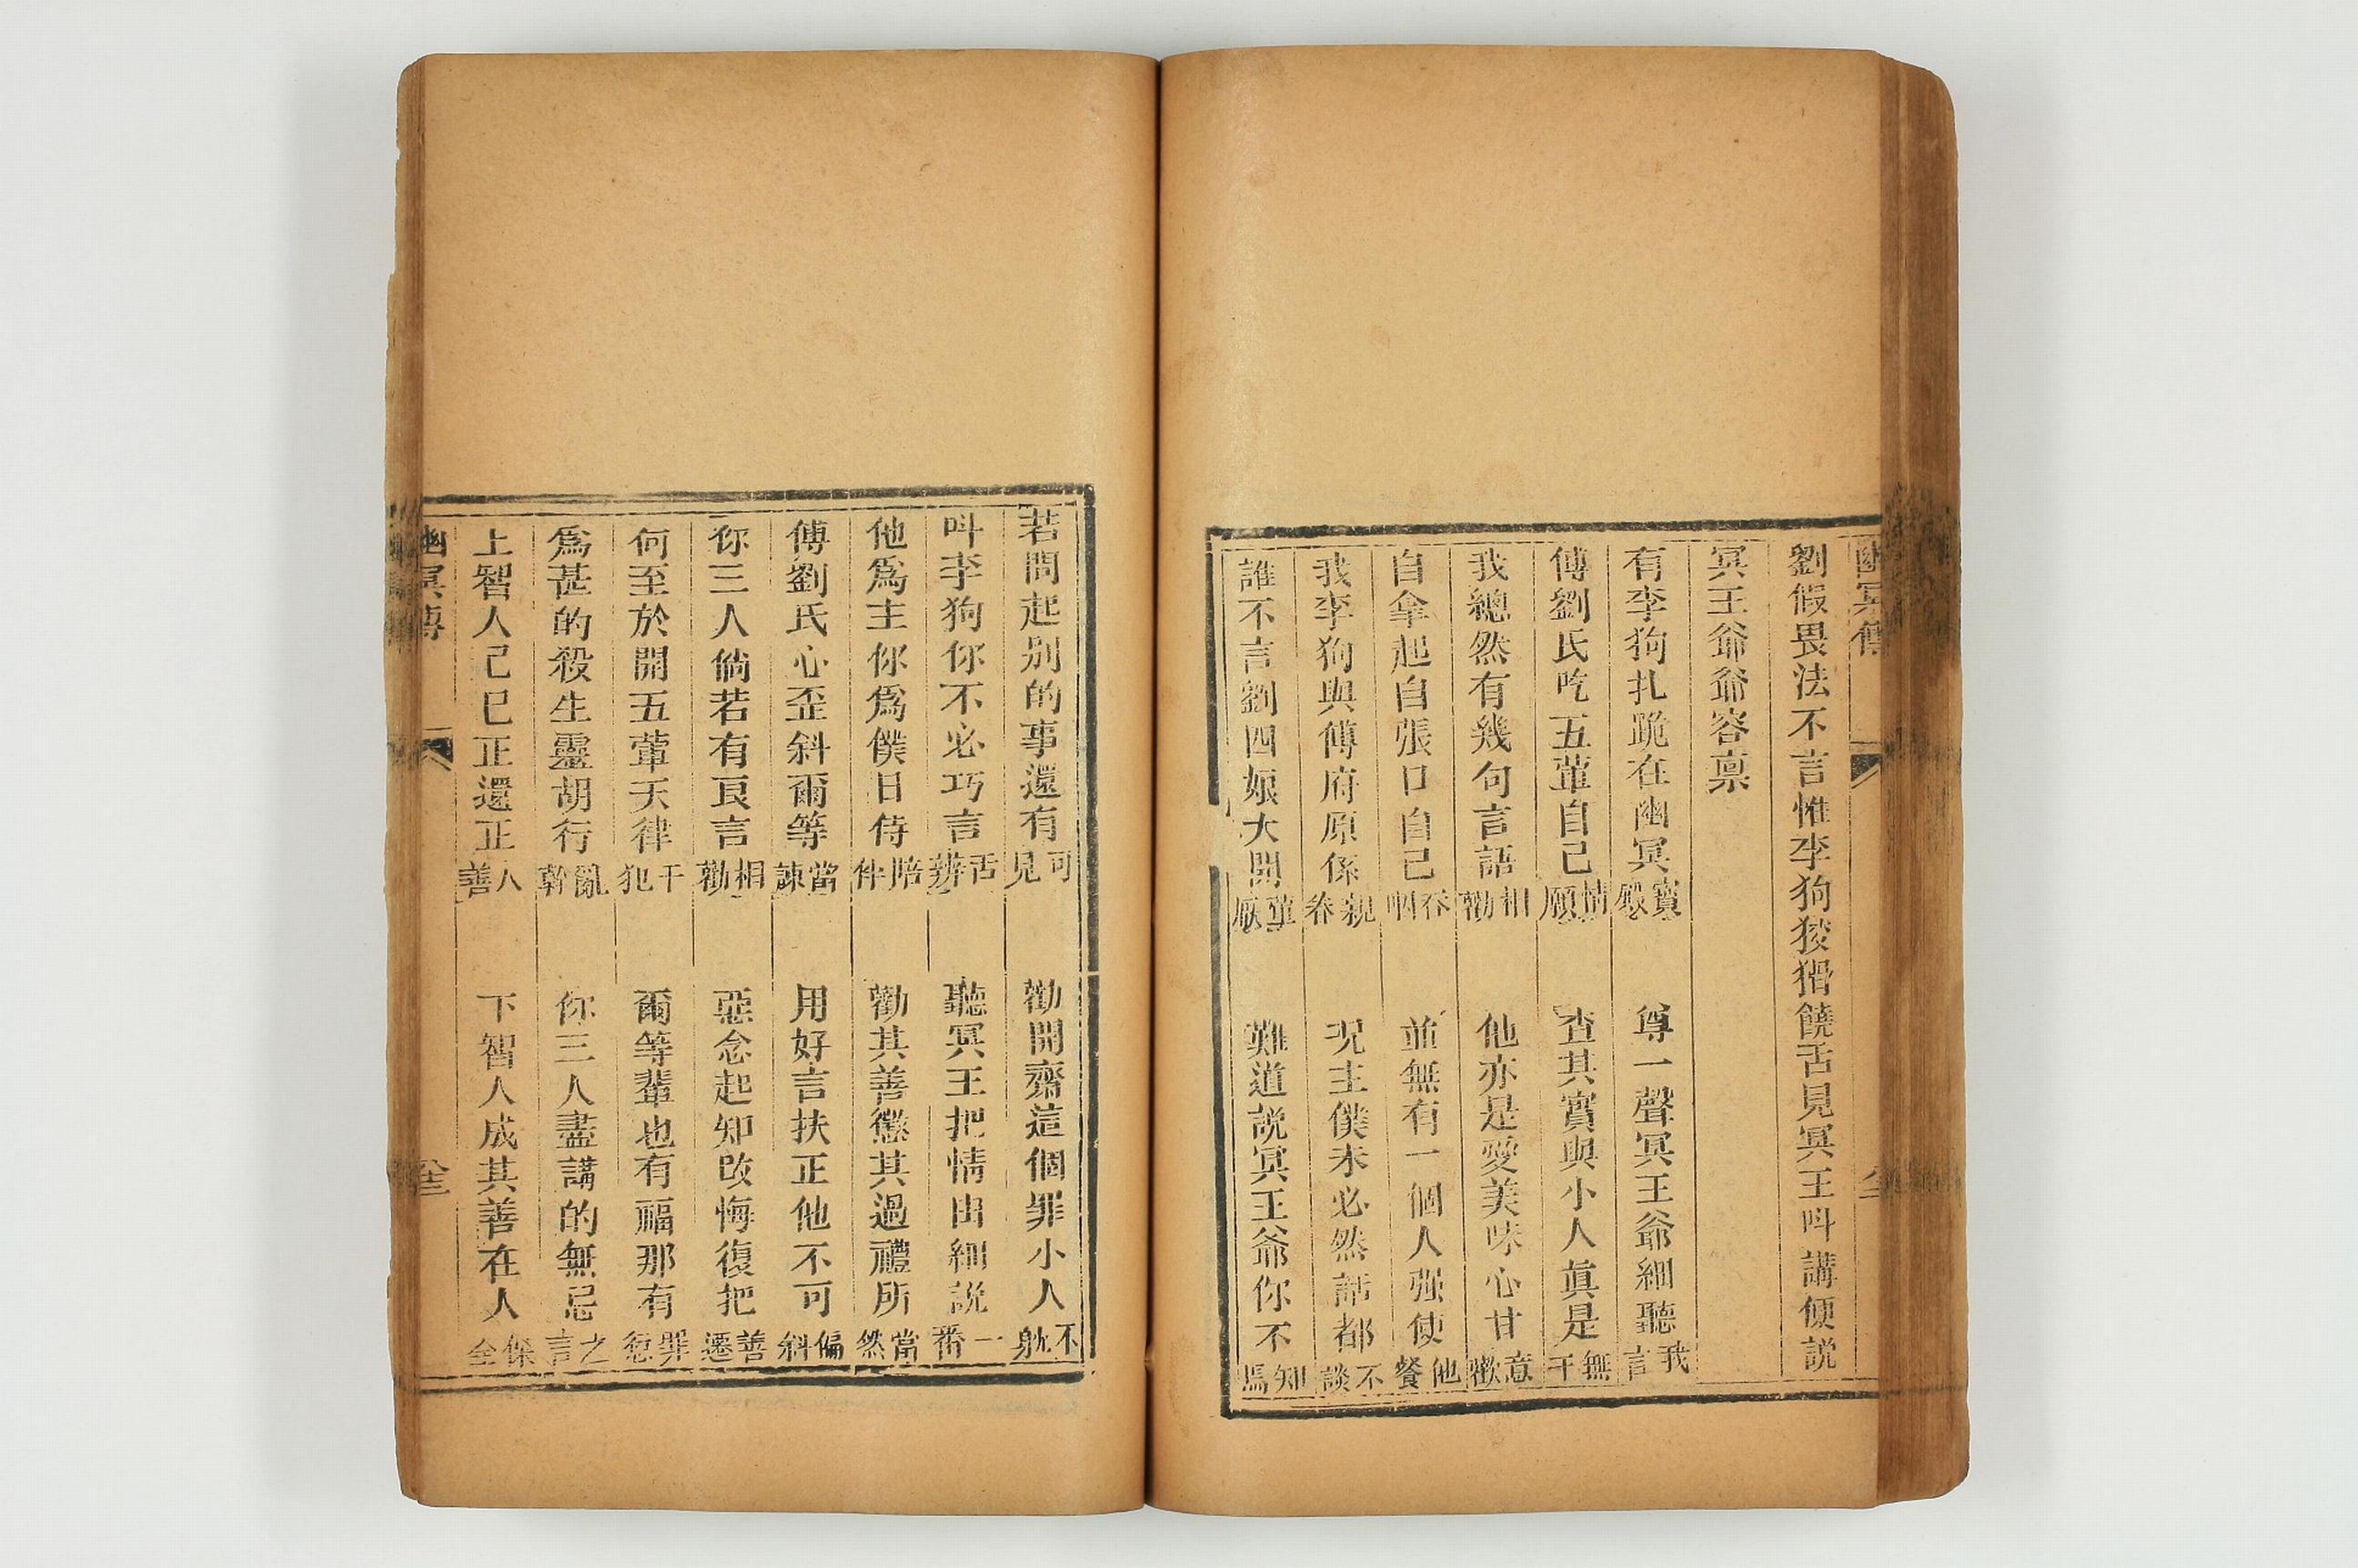 幽冥傳
劉假畏法不言惟李狗狡猾饒舌見冥王呌講便説
冥王爺爺容禀
有李狗扎跪在幽冥寳殿 尊一聲冥王爺細聽我言
傅劉氏吃五葷自己情願 查其實與小人眞是無干
我總然有幾句言語相勸 他亦是愛美味心甘意歡
自拿起自張口自己吞咽 並無有一個人强使他餐
我李狗與傅府原係親眷 况主僕未必然話都不談
誰不言劉四娘大開葷厭 難道説冥王爺你不知焉
若問起别的事還有可見 勸開齋這個罪小人不躭
呌李狗你不必巧言舌辨 聽冥王把情由細説一番
他爲主你爲僕日侍陪伴 勸其善懲其過禮所當然
傅劉氏心歪斜爾等當諫 用好言扶正他不可偏斜
你三人倘若有良言相勸 惡念起知改悔復把善遷
何至於開五葷天律干犯 爾等輩也有福那有罪愆
爲甚的殺生靈胡行亂幹 你三人盡講的無忌之言
上智人己巳正還正人善 下智人成其善在人保全
幽冥傳